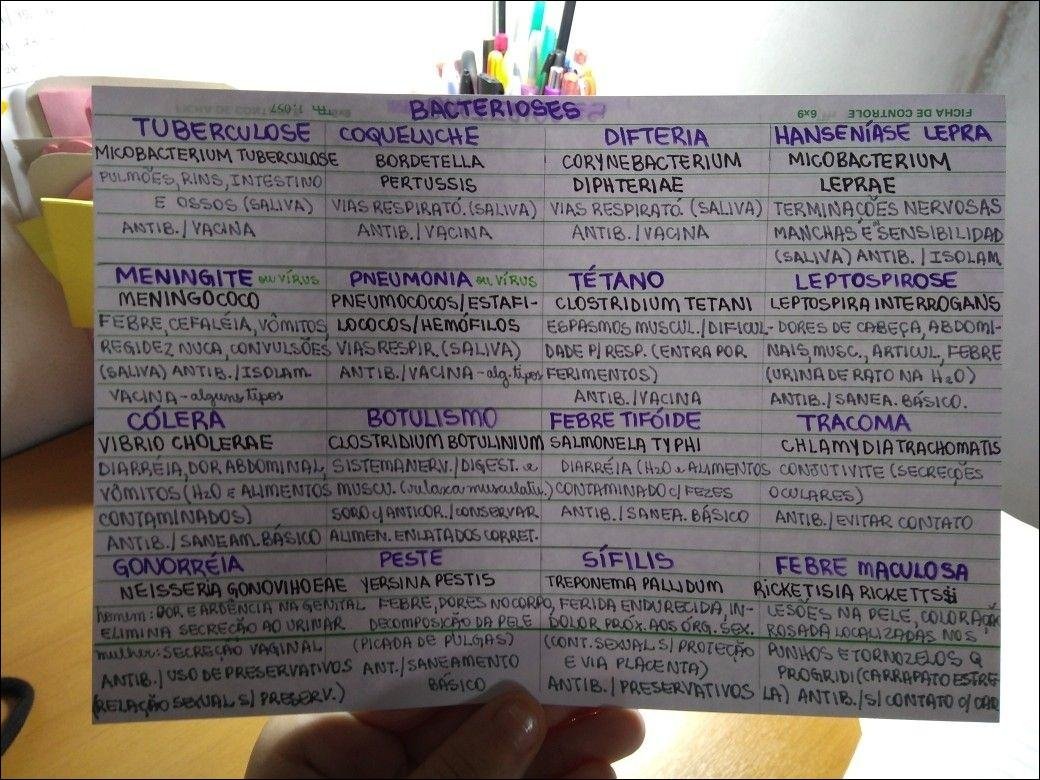 BACTERIOSES
FICHA DE CONTROLE 6x9
TUBERCULOSE
MICOBACTERIUM TUBERCULOSE
PULMÕES, RINS, INTESTINO
E OSSOS (SALIVA)
ANTIB./VACINA
COQUELUCHE
BORDETELLA
PERTUSSIS
VIAS RESPIRATÓ. (SALIVA)
ANTIB./VACINA
DIFTERIA
CORYNEBACTERIUM
DIPHTERIAE
VIAS RESPIRATÓ. (SALIVA)
ANTIB./VACINA
HANSENÍASE LEPRA
MICOBACTERIUM
LEPRAE
TERMINAÇÕES NERVOSAS
MANCHAS E SENSIBILIDAD
(SALIVA) ANTIB./ISOLAM
MENINGITE ou VÍRUS
MENINGOCOCO
FEBRE, CEFALÉIA, VÔMITOS,
REGIDEZ NUCA, CONVULSÕES
(SALIVA) ANTIB./ISOLAM
VACINA - alguns tipos
PNEUMONIA ou VÍRUS
PNEUMOCOCOS/ESTAFI-
LOCOCOS/HEMÓFILOS
VIAS RESPIR. (SALIVA)
ANTIB./VACINA - alg. tipos
TÉTANO
CLOSTRIDIUM TETANI
ESPASMOS MUSCUL./DIFICUL-
DADE P/ RESP. (ENTRA POR
FERIMENTOS)
ANTIB./VACINA
LEPTOSPIROSE
LEPTOSPIRA INTERROGANS
DORES DE CABEÇA, ABDOMI-
NAIS, MUSC., ARTICUL, FEBRE
(URINA DE RATO NA H2O)
ANTIB./SANEA. BÁSICO.
CÓLERA
VIBRIO CHOLERAE
DIARRÉIA, DOR ABDOMINAL,
VÔMITOS (H2O E ALIMENTOS
CONTAMINADOS)
ANTIB./SANEAM. BÁSICO
BOTULISMO
CLOSTRIDIUM BOTULINIUM
SISTEMA NERV./DIGEST. e
MUSCU. (relaxa musculatu.)
SORO C/ ANTICOR./CONSERVAR
ALIMEN. ENLATADOS CORRET.
FEBRE TIFÓIDE
SALMONELA TYPHI
DIARRÉIA (H2O e ALIMENTOS
CONTAMINADO C/ FEZES
ANTIB./SANEA. BÁSICO
TRACOMA
CHLAMYDIA TRACHOMATIS
CONJUTIVITE (SECREÇÕES
OCULARES)
ANTIB./EVITAR CONTATO
GONORRÉIA
NEISSERIA GONOVIHOEAE
homem: DOR E ARDÊNCIA NA GENITAL
ELIMINA SECREÇÃO AO URINAR
mulher: SECREÇÃO VAGINAL
ANTIB./USO DE PRESERVATIVOS
(RELAÇÃO SEXUAL S/ PRESERV.)
PESTE
YERSINA PESTIS
FEBRE, DORES NO CORPO,
DECOMPOSIÇÃO DA PELE
(PICADA DE PULGAS)
ANT./SANEAMENTO
BÁSICO
SÍFILIS
TREPONEMA PALLIDUM
FERIDA ENDURECIDA, IN-
DOLOR PRÓX. AOS ÓRG. SEX.
(CONT. SEXUAL S/ PROTEÇÃO
E VIA PLACENTA)
ANTIB./PRESERVATIVOS
FEBRE MACULOSA
RICKETISIA RICKETTSII
LESÕES NA PELE, COLORAÇÃO
ROSADA LOCALIZADAS NOS
PUNHOS E TORNOZELOS Q
PROGRIDI (CARRAPATO ESTRE
LA) ANTIB./S/ CONTATO C/ CAR